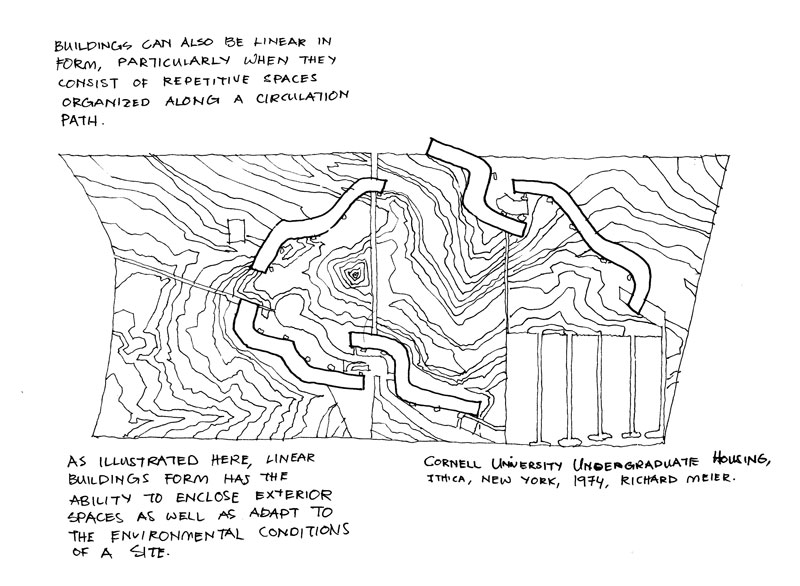 BUILDINGS CAN ALSO BE LINEAR IN
FORM, PARTICULARLY WHEN THEY
CONSIST OF REPETITIVE SPACES
ORGANIZED ALONG A CIRCULATION
PATH.
AS ILLUSTRATED HERE, LINEAR
BUILDINGS FORM HAS THE
ABILITY TO ENCLOSE EXTERIOR
SPACES AS WELL AS ADAPT TO
THE ENVIRONMENTAL CONDITIONS
OF A SITE.
CORNELL UNIVERSITY UNDERGRADUATE HOUSING,
ITHICA, NEW YORK, 1974, RICHARD MEIER.